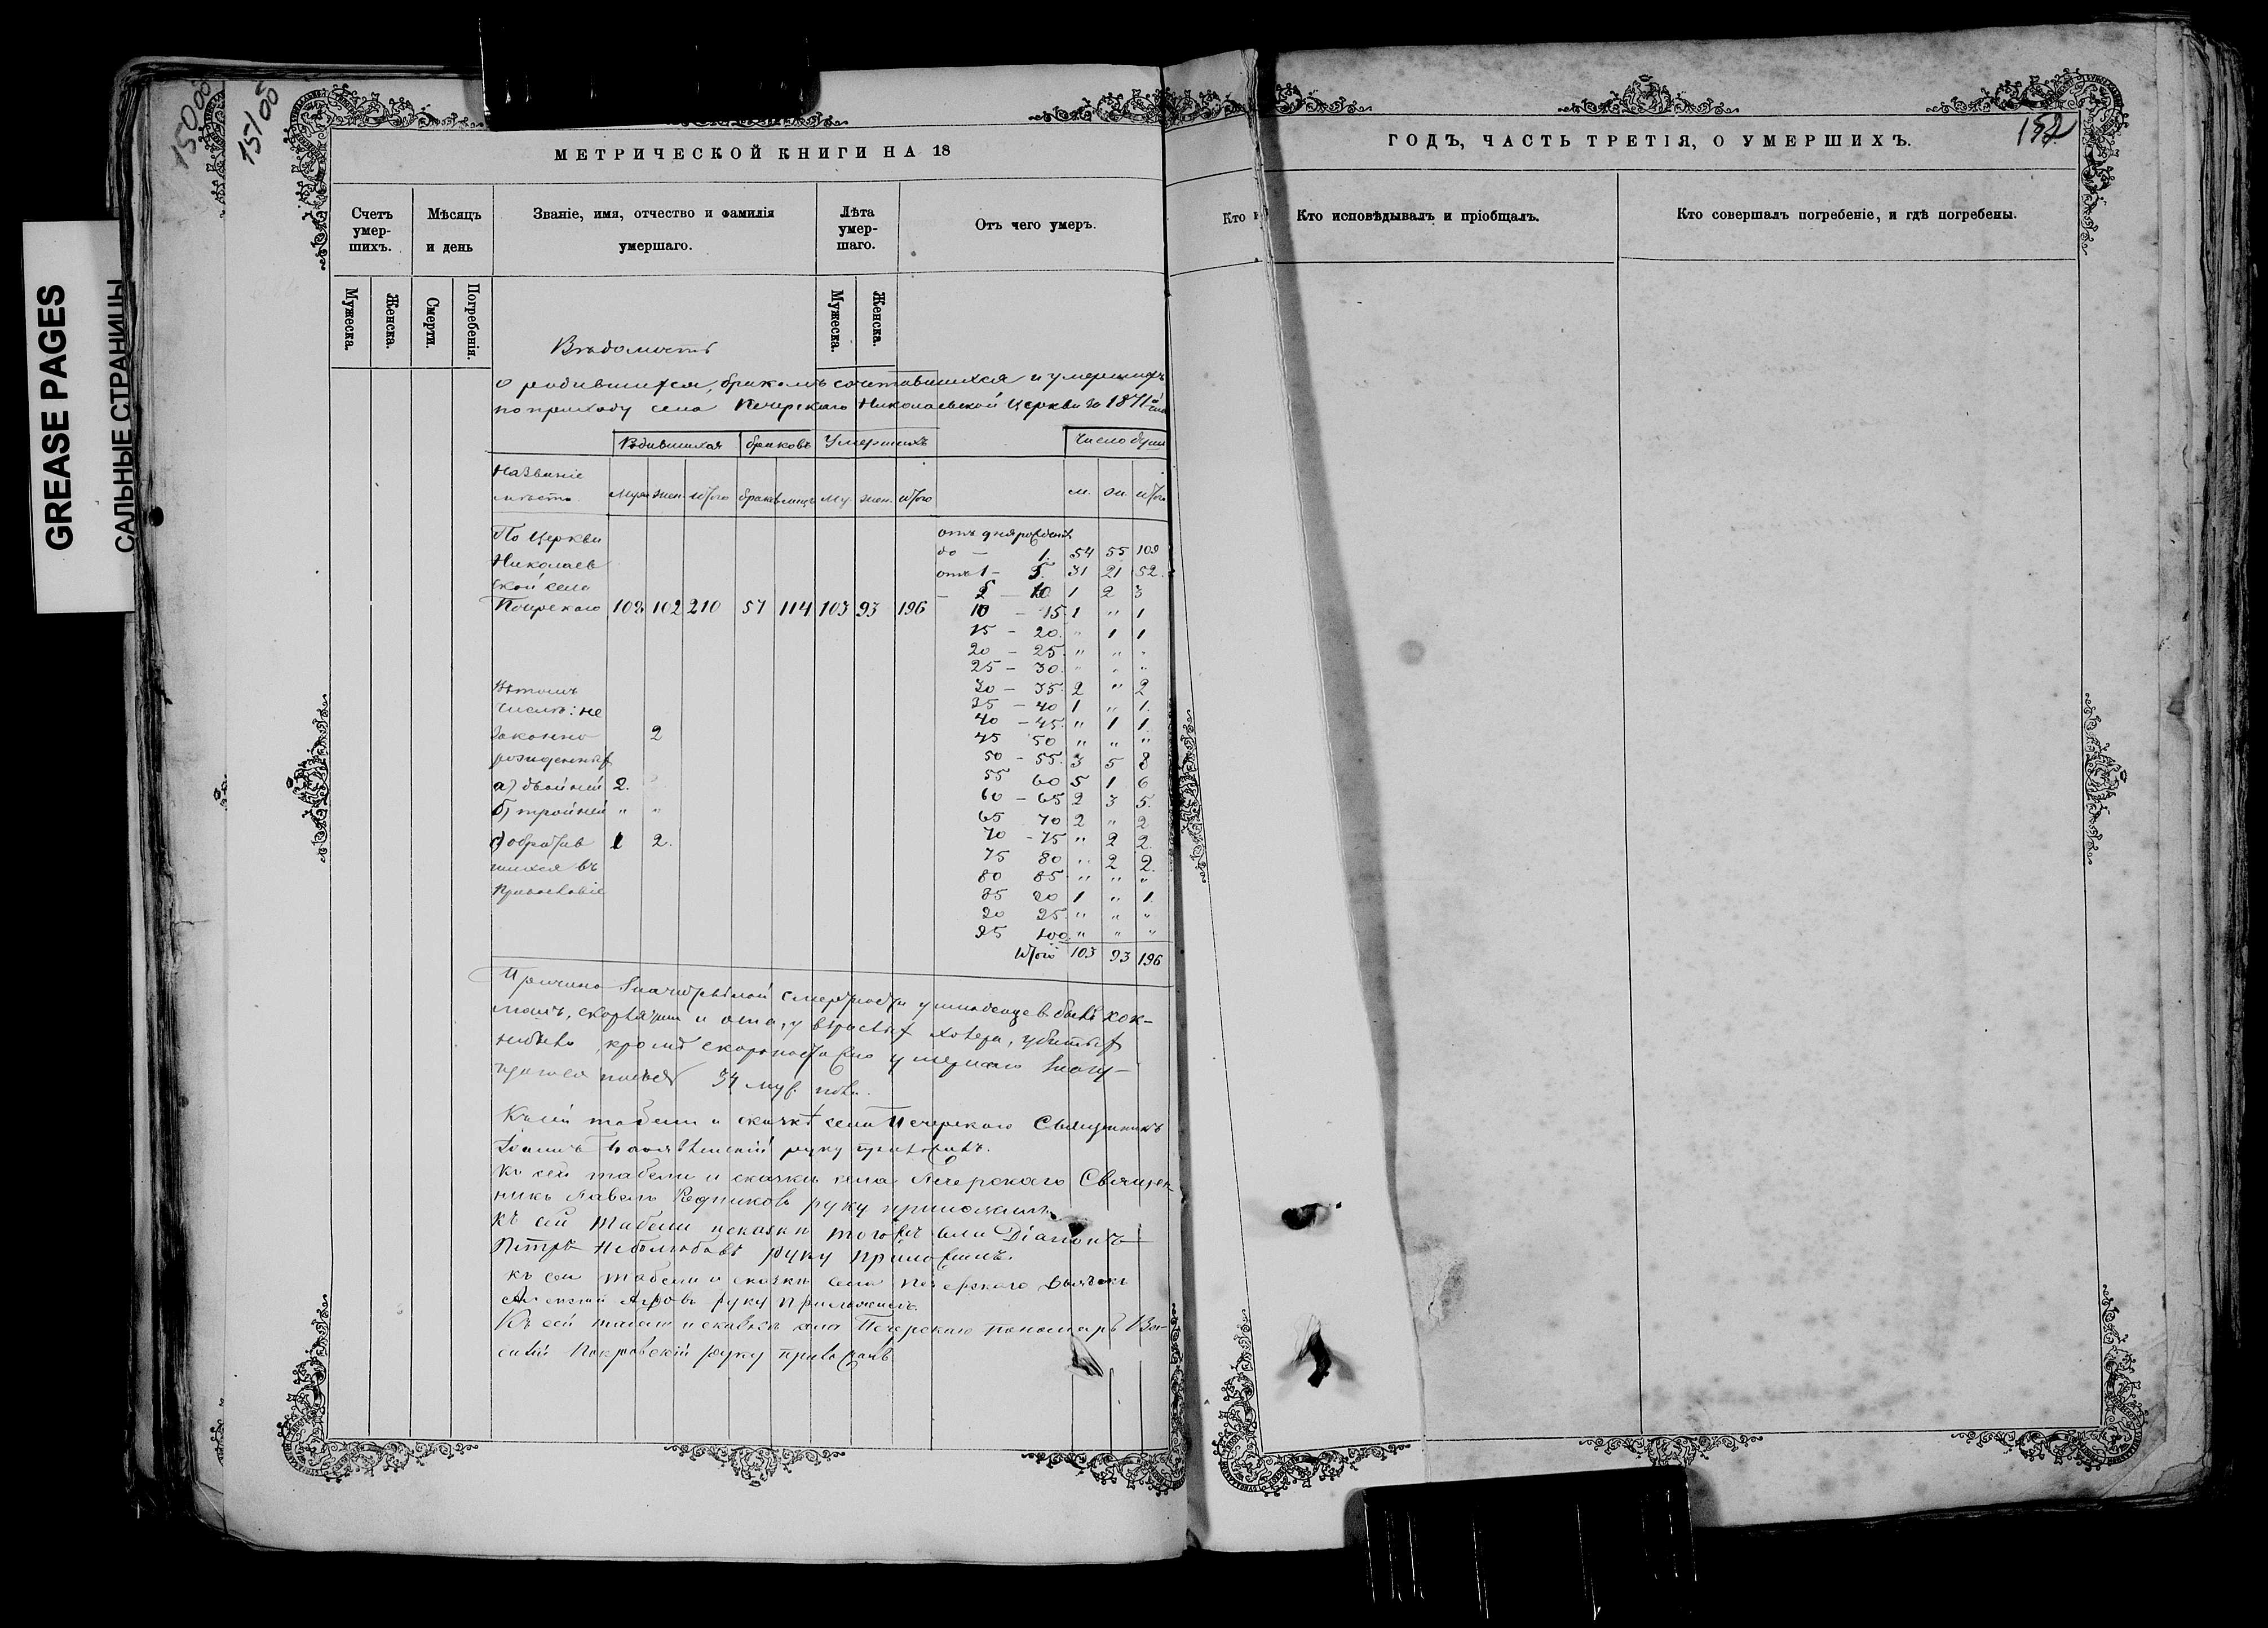 GREASE PAGES
САЛЬНЫЕ СТРАНИЦЫ
150 об
151 об
МЕТРИЧЕСКОЙ КНИГИ НА 18
Счетъ умер-шихъ.
Мѣсяцъ и день
Званіе, имя, отчество и фамилія умершаго.
Лѣта умер-шаго.
Отъ чего умеръ.
Мужеска.
Женска.
Смерти.
Погребенія.
Мужеска.
Женска.
Вѣдомость
о родившихся, бракомъ сочетавшихся и умершихъ
по приходу села Печерскаго Николаевской Церкви за 1871
Родившихся браковъ Умершихъ Число душ
Названіе
мѣста муж жен. итого браковъ лицъ му. жен. итого м. ж. итого
По Церкви
Николаев
ской села
Печерскаго 108 102 210 57 114 103 93 196
Въ томъ
числѣ: не
законно 2
рожденныхъ
а) двойней 2.
б) тройней " "
с) обратив 1 2.
шихся въ
Православіе
отъ дня рожденія
до — 1. 54 55 109
отъ 1 — 5. 31 21 52.
— 5 — 10 1 2 3
10 — 15 1 " 1
15 — 20. " 1 1
20 — 25. " " "
25 — 30. " " "
30 — 35. 2 " 2
35 — 40 1 " 1.
40 — 45. " 1 1.
45 50 " " "
50 — 55. 3 5 8
55 60 5 1 6
60 — 65 2 3 5.
65 70 2 " 2
70 — 75 " 2 2.
75 80 " 2 2.
80 85. " " "
85 90 1 " 1.
90 95. " " "
95 100. " " "
Итого 103 93 196
Причина значительной смертности у младенцевъ была кок-
кромѣ скоропостижно умершаго
34 муж. пола.
Къ сей табели и сказкѣ села Печерскаго Священникъ
руку приложилъ.
Къ сей табели и сказки села Печерскаго Священ-
никъ Павелъ руку приложилъ
Къ сей табели и сказки того же села Діаконъ
Петръ Неболюбовъ руку приложилъ.
къ сей табели и сказки села Печерскаго
руку приложилъ.
Къ сей табели и сказкѣ села Печерскаго пономарь
Покровскій руку приложилъ
Кто и
ГОДЪ, ЧАСТЬ ТРЕТІЯ, О УМЕРШИХЪ.
152
Кто исповѣдывалъ и пріобщалъ.
Кто совершалъ погребеніе, и гдѣ погребены.